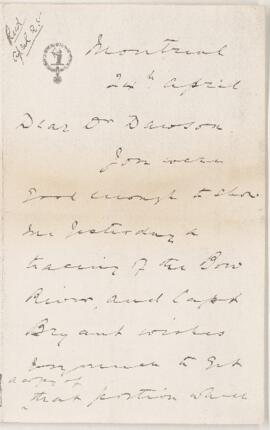 Montreal
24th April
Dear Dr Dawson
You were
good enough to show
me Yesterday a
tracing of the Bow
River, and Capt
Bryant wishes
very much to get
a copy of
that portion which